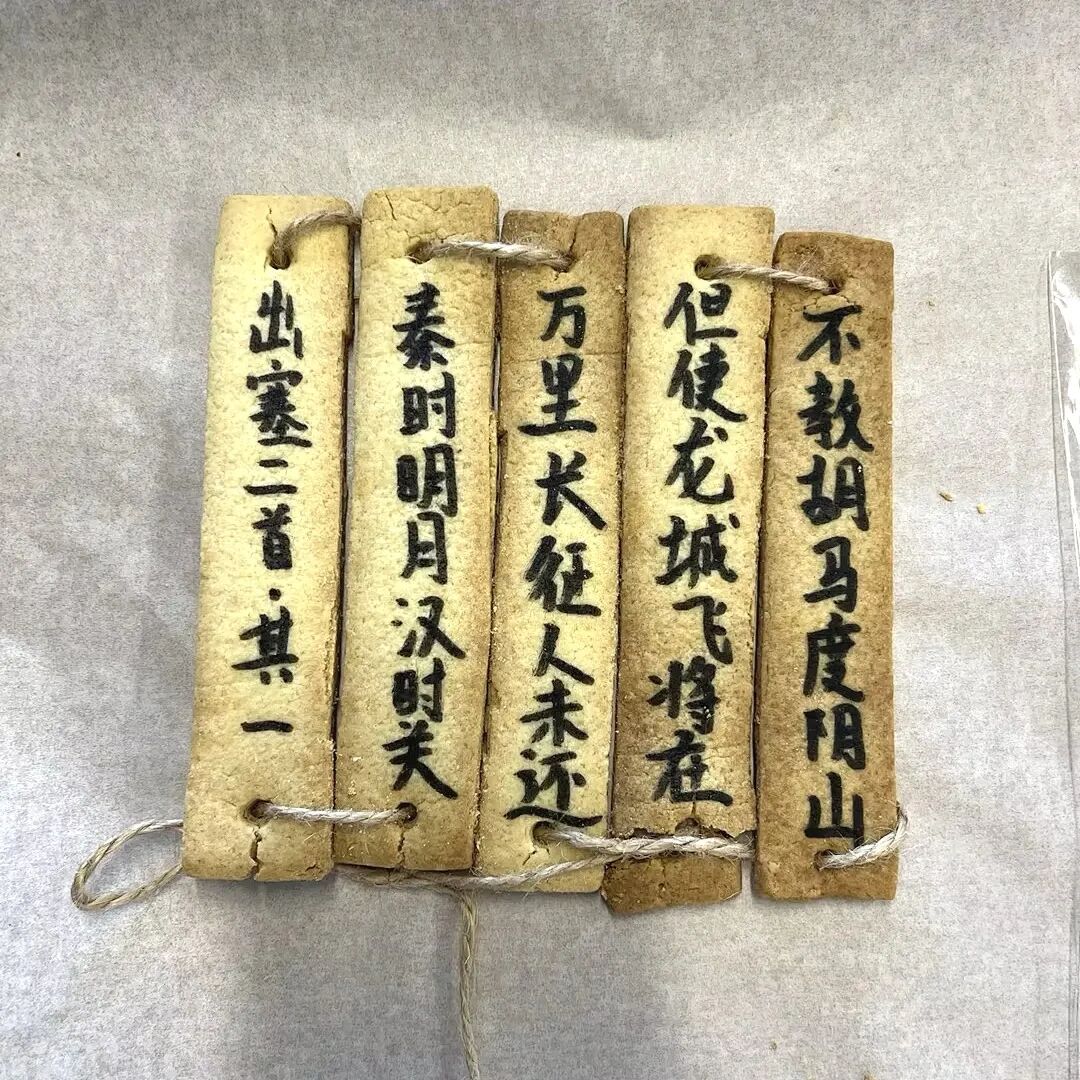 出塞二首·其一
秦时明月汉时关
万里长征人未还
但使龙城飞将在
不教胡马度阴山